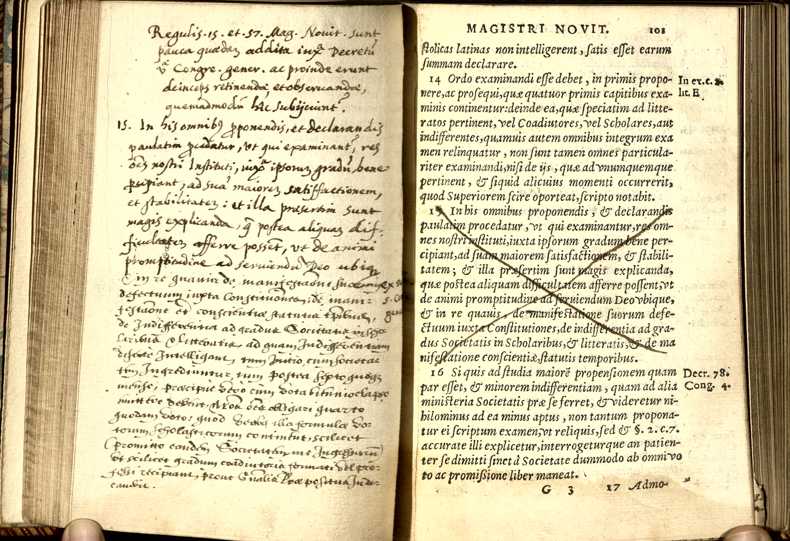 Regulis .15. et .57. Mag. Novit. sunt
pauca quædam addita iux Decretū
Congre. gener. ac proinde erunt
deinceps retinendæ et obseruandæ,
quemadmodū hîc subijciunt.
15. In his omnibus proponendis, et declarandis
paulatim procedatur, vt qui examinant, res
oēs nostri Instituti, iuxta ipsorum gradū, bene
percipiant, ad sua maiorem satisfactionem,
et stabilitatem: et illa præsertim sunt
magis explicanda, q postea aliquam dif-
ficultatem afferre posset, vt de animi
promptitudine ad seruiendū Deo ubique
et in re quauis de manifestatione suorum
defectuum iuxta Constitutiones, de mani-
festatione et conscientiæ statutis temporibus,
de Indifferentia ad gradus Societatis in Scho-
laribus et Litteratis ad quam Indifferentiam
Intelligant, tum Initio cum Societatem
Ingrediuntur, tum postea
mense, præcipue vero cum vota
mittere debent, Non oēs obligari quarto
quodam voto; quod verba illa formulæ vo-
torum scholasticorum continent, scilicet
(promitto eandem Societatem me Ingressurum)
vt scilicet gradum coadiutoris formati vel pro-
fessi recipiant, prout Præpositus
MAGISTRI NOVIT. 101
stolicas latinas non intelligerent, satis esset earum
summam declarare.
14 Ordo examinandi esse debet, in primis propo-
nere, ac prosequi, quæ quatuor primis capitibus exa-
minis continentur: deinde ea, quæ speciatim ad litte-
ratos pertinent, vel Coadiutores, vel Scholares, aut
indifferentes, quamuis autem omnibus integrum exa
men relinquatur, non sunt tamen omnes particula-
riter examinandi, nisi de ijs, quæ ad vnumquemque
pertinent, & siquid alicuius momenti occurrerit,
quod Superiorem scire oporteat, scripto notabit.
In ex. c. 2.
lit. E
15 In his omnibus proponendis, & declarandis
paulatim procedatur, vt qui examinantur, res om-
nes nostri instituti, iuxta ipsorum gradum bene per-
cipiant, ad suam maiorem satisfactionem, & stabili-
tatem; & illa præsertim sunt magis explicanda,
quæ postea aliquam difficultatem afferre possent, vt
de animi promptitudine ad seruiendum Deo vbique,
& in re quauis, de manifestatione suorum defe-
ctuum iuxta Constitutiones, de indifferentia ad gra-
dus Societatis in Scholaribus, & litteratis, & de ma
nifestatione conscientiæ, statutis temporibus.
16 Si quis ad studia maiorē propensionem quam
par esset, & minorem indifferentiam, quam ad alia
ministeria Societatis præ se ferret, & videretur ni-
hilominus ad ea minus aptus, non tantum propona-
tur ei scriptum examen, vt reliquis, sed & §. 2. c. 7.
accurate illi explicetur, interrogeturque an patien-
ter se dimitti sinet à Societate dummodo ab omni vo
to ac promissione liber maneat.
Decr. 78.
Cong. 4.
G 3 17 Admo-